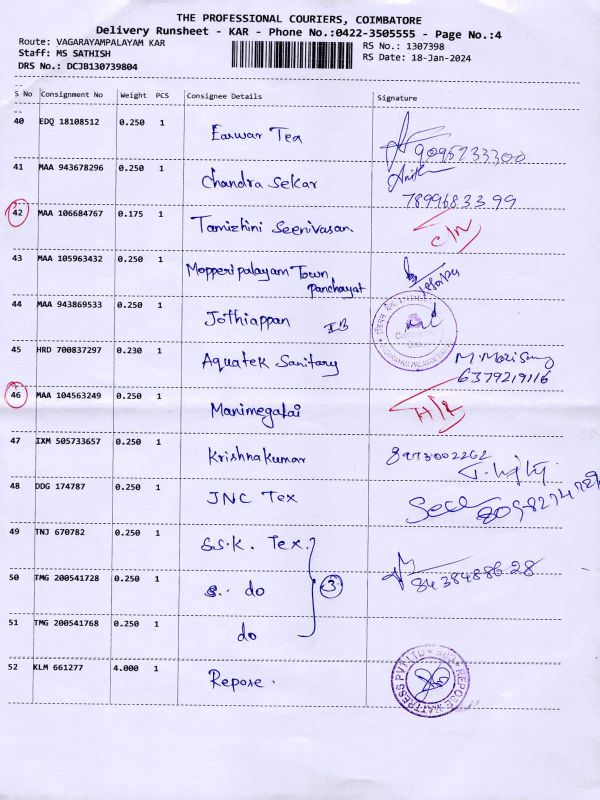 THE PROFESSIONAL COURIERS, COIMBATORE
Delivery Runsheet - KAR - Phone No.:0422-3505555 - Page No.:4
Route: VAGARAYAMPALAYAM KAR
RS No.: 1307398
Staff: MS SATHISH
RS Date: 18-Jan-2024
DRS No.: DCJB130739804
S No Consignment No Weight PCS Consignee Details Signature
40 EDQ 18108512 0.250 1 Earwar Tex
9095233300
41 MAA 943678296 0.250 1 Chandra Sekar
7899683399
42 MAA 106684767 0.175 1 Tamizhini Seenivasan C/N
43 MAA 105963432 0.250 1 Mopperipalayam Town
Panchayat
44 MAA 943869533 0.250 1 Jothiappan
45 HRD 700837297 0.230 1 Aquatek Sanitary
6379219116
46 MAA 104563249 0.250 1 Manimegalai
47 IXM 505733657 0.250 1 Krishnakumar 8973002262
48 DDG 174787 0.250 1 JNC Tex
49 TNJ 670782 0.250 1 S.S.K. Tex.
50 TMG 200541728 0.250 1 do 3
8438488628
51 TMG 200541768 0.250 1 do
52 KLM 661277 4.000 1 Repose.
REPOSE MATTRESS PVT LTD